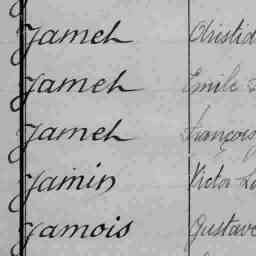 Jamet Aristid
Jamet Emile
Jamet François
Jamin Victor Lo
Jamois Gustave